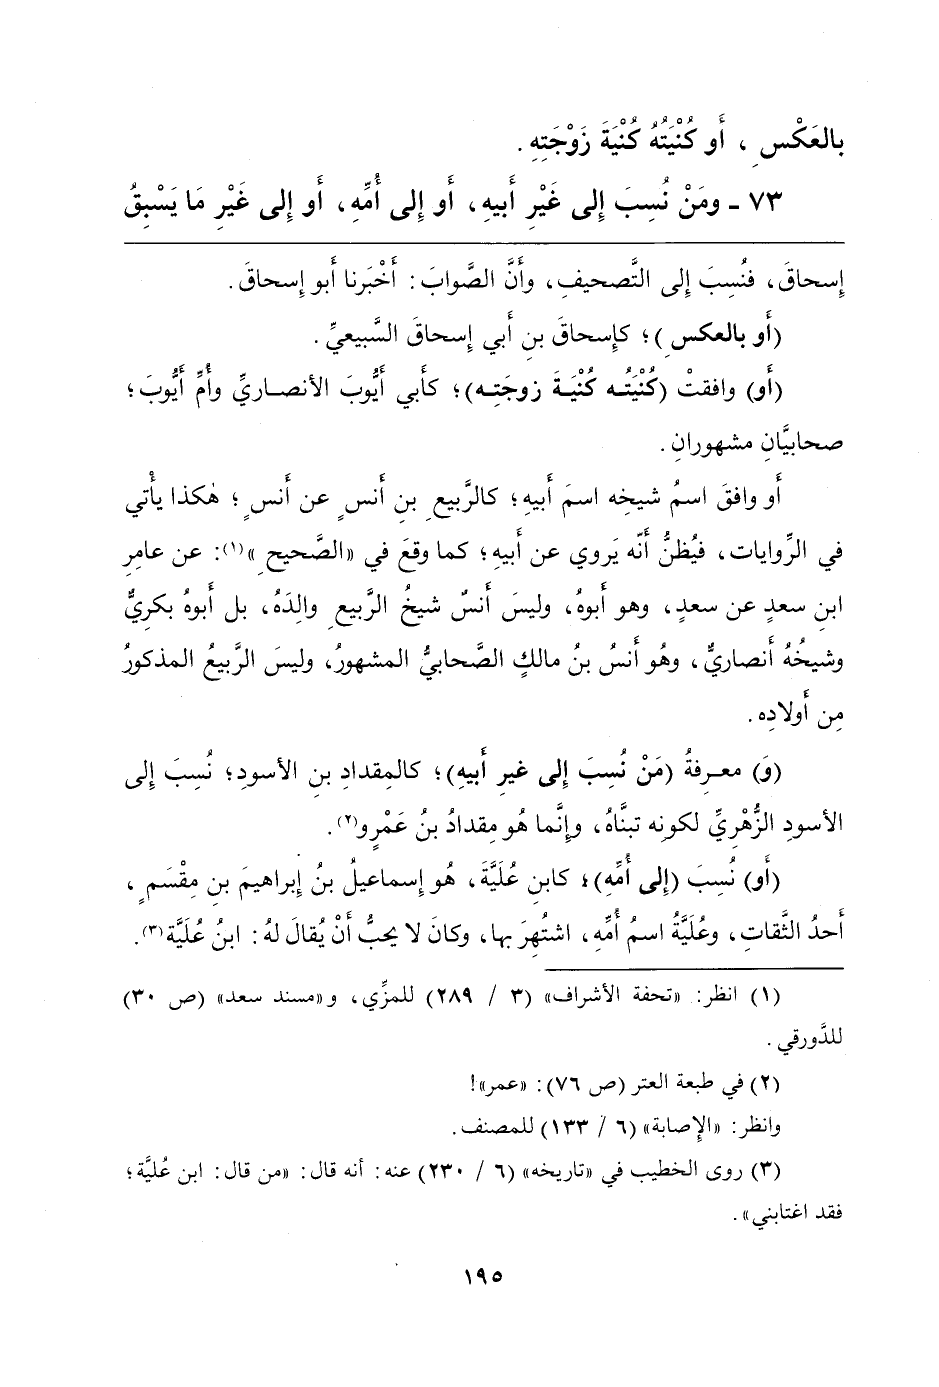 بالعَكْسِ ، أَو كُنْيَتُهُ كُنْيَةَ زَوْجَتِهِ .
٧٣ ـ ومَنْ نُسِبَ إِلى غَيْرِ أَبيهِ، أَو إِلى أُمِّهِ، أَو إِلى غَيْرِ مَا يَسْبِقُ
إسحاقَ، فنُسِبَ إلى التَّصحيفِ، وأَنَّ الصَّوابَ: أَخْبَرنا أَبو إسحاقَ.
(أَو بالعكسِ)؛ كإسحاقَ بنِ أَبي إسحاقَ السَّبيعيِّ.
(أَو) وافقتْ (كُنْيَتُه كُنْيَةَ زوجَتِه)؛ كأَبي أَيُّوبَ الأنصاريِّ وأُمِّ أَيُّوبَ؛
صحابيَّانِ مشهورانِ.
أَو وافقَ اسمُ شيخِه اسمَ أَبيهِ؛ كالرَّبيعِ بنِ أَنسٍ عن أَنسٍ؛ هٰكذا يأْتي
في الرِّوايات، فيُظنُّ أَنَّه يَروي عن أَبيهِ؛ كما وقعَ في «الصَّحيحِ»(١): عن عامِرِ
ابنِ سعدٍ عن سعدٍ، وهو أَبوهُ، وليسَ أَنسٌ شيخُ الرَّبيعِ والِدَهُ، بل أَبوهُ بكريٌّ
وشيخُهُ أَنصاريٌّ، وهُو أَنسُ بنُ مالكٍ الصَّحابيُّ المشهورُ، وليسَ الرَّبيعُ المذكورُ
مِن أَولادِه.
(وَ) معرفةُ (مَنْ نُسِبَ إِلى غيرِ أَبيهِ)؛ كالمِقدادِ بنِ الأسودِ؛ نُسِبَ إِلى
الأسودِ الزُّهْرِيِّ لكونِه تبنَّاهُ، وإِنَّما هُو مِقدادُ بنُ عَمْرٍو(٢).
(أَو) نُسِبَ (إِلى أُمِّهِ)؛ كابنِ عُلَيَّةَ، هُو إسماعيلُ بنُ إبراهيمَ بنِ مِقْسَمٍ،
أَحدُ الثَّقاتِ، وعُلَيَّةُ اسمُ أُمِّهِ، اشتُهِرَ بها، وكانَ لا يحبُّ أَنْ يُقالَ لهُ: ابنُ عُلَيَّة(٣).
(١) انظر: «تحفة الأشراف» (٣ / ٢٨٩) للمزِّي، و«مسند سعد» (ص ٣٠)
للدَّورقي.
(٢) في طبعة العتر (ص ٧٦): «عمر»!
وانظر: «الإصابة» (٦ / ١٣٣) للمصنف.
(٣) روى الخطيب في «تاريخه» (٦ / ٢٣٠) عنه: أنه قال: «من قال: ابن عُليَّة؛
فقد اغتابني».
١٩٥